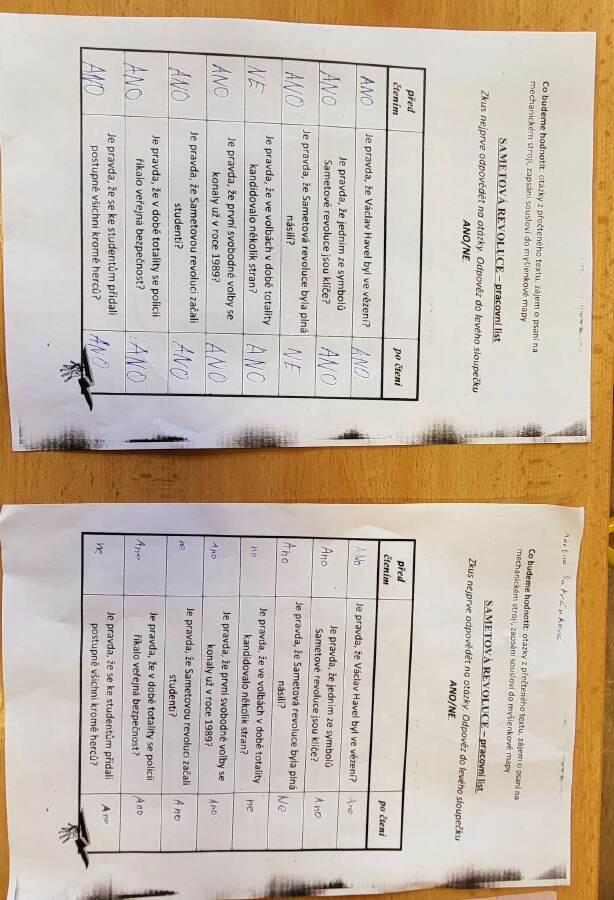 Co budeme hodnotit: otázky z přečteného textu, zájem o psaní na
mechanickém stroji, zapsání sousloví do myšlenkové mapy
SAMETOVÁ REVOLUCE – pracovní list
Zkus nejprve odpovědět na otázky. Odpověz do levého sloupečku
ANO/NE.
před
čtením
po čtení
ANO Je pravda, že Václav Havel byl ve vězení? ANO
ANO Je pravda, že jedním ze symbolů
Sametové revoluce jsou klíče? ANO
ANO Je pravda, že Sametová revoluce byla plná
násilí? NE
NE Je pravda, že ve volbách v době totality
kandidovalo několik stran? ANO
ANO Je pravda, že první svobodné volby se
konaly už v roce 1989? ANO
ANO Je pravda, že Sametovou revoluci začali
studenti? ANO
ANO Je pravda, že v době totality se policii
říkalo veřejná bezpečnost? ANO
ANO Je pravda, že se ke studentům přidali
postupně všichni kromě herců? ANO
Co budeme hodnotit: otázky z přečteného textu, zájem o psaní na
mechanickém stroji, zapsání sousloví do myšlenkové mapy
SAMETOVÁ REVOLUCE – pracovní list
Zkus nejprve odpovědět na otázky. Odpověz do levého sloupečku
ANO/NE.
před
čtením
po čtení
ANo Je pravda, že Václav Havel byl ve vězení? Ano
Ano Je pravda, že jedním ze symbolů
Sametové revoluce jsou klíče? Ano
Ano Je pravda, že Sametová revoluce byla plná
násilí? Ne
ne Je pravda, že ve volbách v době totality
kandidovalo několik stran? ne
Ano Je pravda, že první svobodné volby se
konaly už v roce 1989? Ano
ne Je pravda, že Sametovou revoluci začali
studenti? Ano
Ano Je pravda, že v době totality se policii
říkalo veřejná bezpečnost? Ano
ne Je pravda, že se ke studentům přidali
postupně všichni kromě herců? Ano